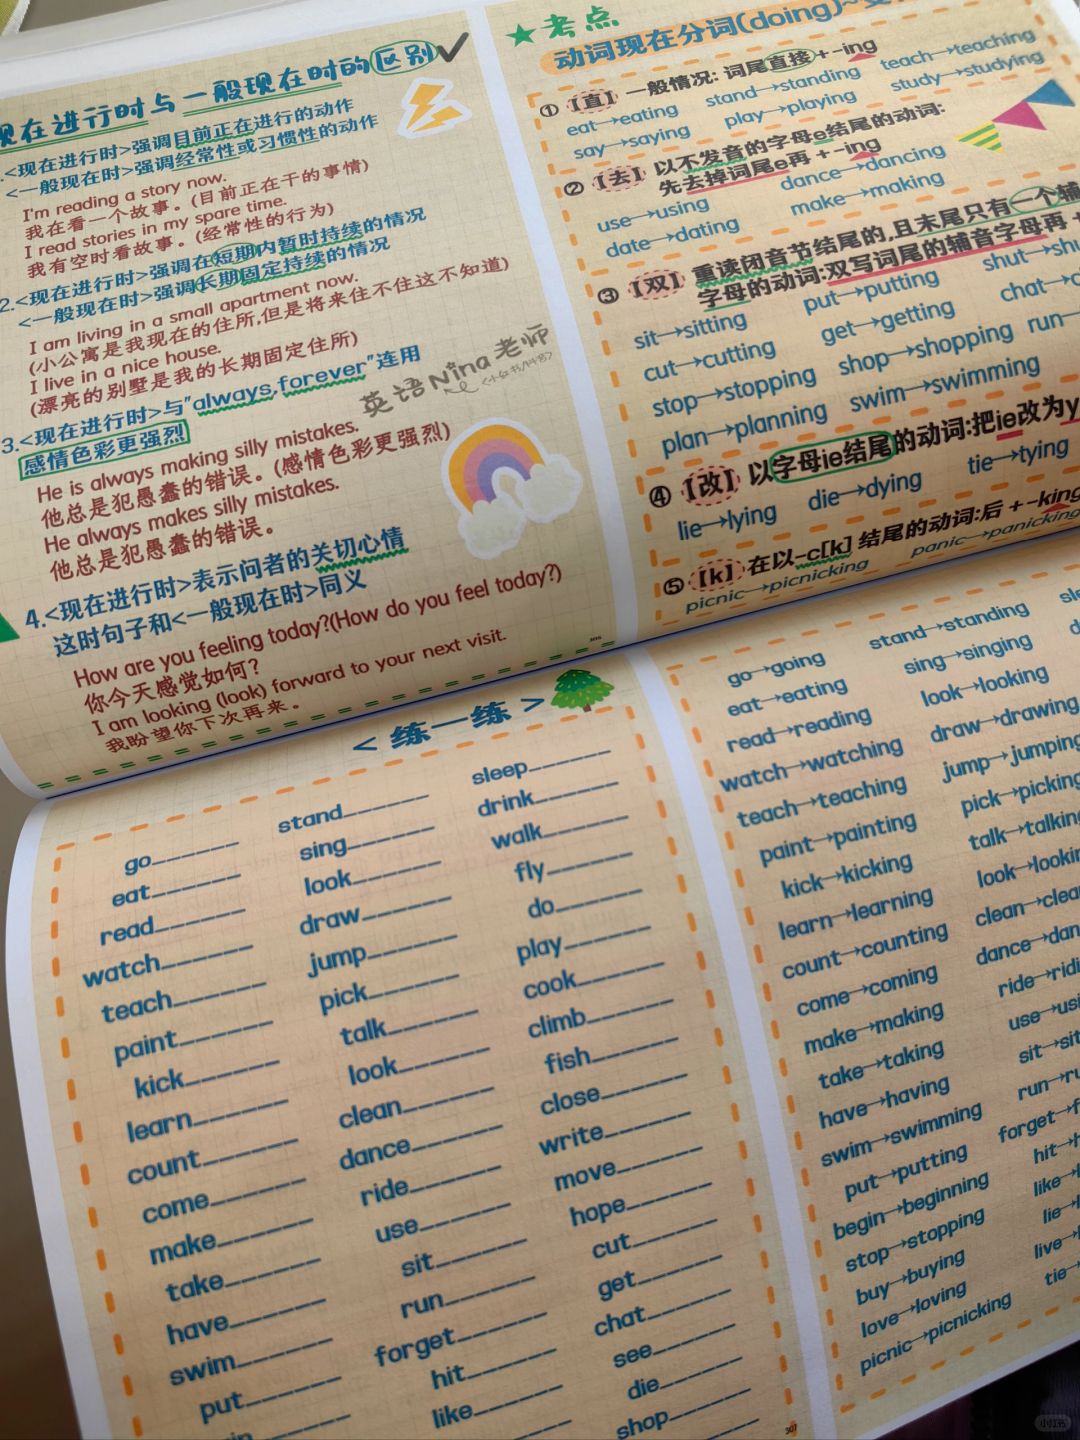 现在进行时与一般现在时的区别
<现在进行时>强调目前正在进行的动作
<一般现在时>强调经常性或习惯性的动作
I'm reading a story now.
我在看一个故事。(目前正在干的事情)
I read stories in my spare time.
我有空时看故事。(经常性的行为)
2.<现在进行时>强调在短期内暂时持续的情况
<一般现在时>强调长期固定持续的情况
I am living in a small apartment now.
(小公寓是我现在的住所,但是将来住不住这不知道)
I live in a nice house.
(漂亮的别墅是我的长期固定住所)
3.<现在进行时>与"always,forever"连用
感情色彩更强烈
He is always making silly mistakes.
他总是犯愚蠢的错误。(感情色彩更强烈)
He always makes silly mistakes.
他总是犯愚蠢的错误。
4.<现在进行时>表示问者的关切心情
这时句子和<一般现在时>同义
How are you feeling today?(How do you feel today?)
你今天感觉如何?
I am looking (look) forward to your next visit.
我盼望你下次再来。
英语Nina老师
★考点
动词现在分词(doing)~
① 【直】 一般情况: 词尾直接 + -ing
eat→eating stand→standing teach→teaching
say→saying play→playing study→studying
② 【去】 以不发音的字母e结尾的动词:
先去掉词尾e再 + -ing
use→using dance→dancing
date→dating make→making
③ 【双】 重读闭音节结尾的,且末尾只有一个辅
字母的动词:双写词尾的辅音字母再 +
sit→sitting put→putting
cut→cutting get→getting chat→
stop→stopping shop→shopping run→
plan→planning swim→swimming
④ 【改】 以字母ie结尾的动词:把ie改为y
lie→lying die→dying tie→tying
⑤ 【k】 在以-c[k] 结尾的动词:后 + -king
picnic→picnicking panic→panicking
< 练一练 >
go______ stand______ sleep______
eat______ sing______ drink______
read______ look______ walk______
watch______ draw______ fly______
teach______ jump______ do______
paint______ pick______ play______
kick______ talk______ cook______
learn______ look______ climb______
count______ clean______ fish______
come______ dance______ close______
make______ ride______ write______
take______ use______ move______
have______ sit______ hope______
swim______ run______ cut______
put______ forget______ get______
hit______ chat______
like______ see______
die______
shop______
307
go→going stand→standing
eat→eating sing→singing
read→reading look→looking
watch→watching draw→drawing
teach→teaching jump→jumping
paint→painting pick→picking
kick→kicking talk→talking
learn→learning look→looking
count→counting clean→
come→coming dance→
make→making ride→
take→taking use→
have→having sit→
swim→swimming run→
put→putting forget→
begin→beginning hit→
stop→stopping like→
buy→buying lie→
love→loving live→
picnic→picnicking tie→
小红书